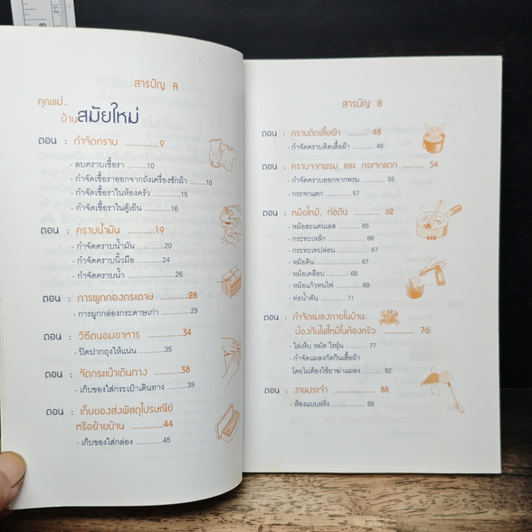 สารบัญ A
คุณแม่..
บ้านสมัยใหม่
ตอน : กำจัดคราบ ............. 9
- ลบคราบเชื้อรา ........10
- กำจัดเชื้อราออกจากถังเครื่องซักผ้า ....10
- กำจัดเชื้อราในห้องครัว ........ 15
- กำจัดเชื้อราในตู้เย็น ............ 16
ตอน : คราบน้ำมัน ............19
- กำจัดคราบน้ำมัน ............. 20
- กำจัดคราบนิ้วมือ ............. 24
- กำจัดคราบน้ำ ................ 26
ตอน : การผูกกองกระดาษ ............28
- การผูกกล่องกระดาษเก่า ......... 29
ตอน : วิธีถนอมอาหาร ............34
- ปิดปากถุงให้แน่น ..........35
ตอน : จัดกระเป๋าเดินทาง ............ 38
- เก็บของใส่กระเป๋าเดินทาง ........ 39
ตอน : เก็บของส่งพัสดุไปรษณีย์
หรือย้ายบ้าน ............44
- เก็บของใส่กล่อง ........... 45
สารบัญ B
ตอน : คราบติดเสื้อผ้า ............ 48
- กำจัดคราบติดเสื้อผ้า ........... 49
ตอน : คราบจากพรม และ กระจกแตก ............ 54
- กำจัดคราบออกจากพรม ............ 55
- กระจกแตก ............ 57
ตอน : หม้อไหม้, ท่อตัน ............ 62
- หม้อสแตนเลส ............ 65
- กระทะเหล็ก ............ 66
- กระทะเทปล่อน ............ 67
- หม้อดิน ............ 67
- หม้อเคลือบ ............ 68
- หม้อแก้วทนไฟ ............ 69
- ท่อน้ำตัน ............ 71
ตอน : กำจัดแมลงภายในบ้าน
ป้องกันไฟไหม้ในห้องครัว ............ 76
- ไล่เห็บ หมัด ไรฝุ่น ............ 77
- กำจัดแมลงกัดกินเสื้อผ้า
โดยไม่ต้องใช้ยาฆ่าแมลง ........ 84
ตอน : งานประจำ ............ 88
- ห้องแบบฝรั่ง ............ 89